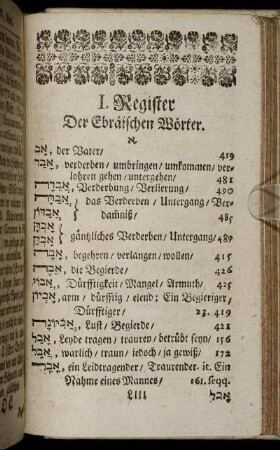 I. Register
Der Ebräischen Wörter.
א
אָב, der Vater/ 419
אָבַד, verderben/ umbringen/ umkommen/ ver-
lohren gehen/ untergehen/ 481
אֲבֵדָה, Verderbung/ Verlierung/ 490
das Verderben/ Untergang/ Ver-
damniß/ 485
gäntzliches Verderben/ Untergang/ 489
אָבָה, begehren/ verlangen/ wollen/ 415
die Begierde/ 426
Dürfftigkeit/ Mangel/ Armuth/ 425
אֶבְיוֹן, arm/ dürfftig/ elend; Ein Begieriger/
Dürfftiger/ 23. 419
אֲבִיּוֹנָה, Lust/ Begierde/ 421
אָבַל, Leyde tragen/ trauren/ betrübt seyn/ 156
אֲבָל, warlich/ traun/ iedoch/ ja gewiß/ 172
ein Leidtragender/ Traurender. it. Ein
Nahme eines Mannes/ 161. seqq.
Llll
אבל